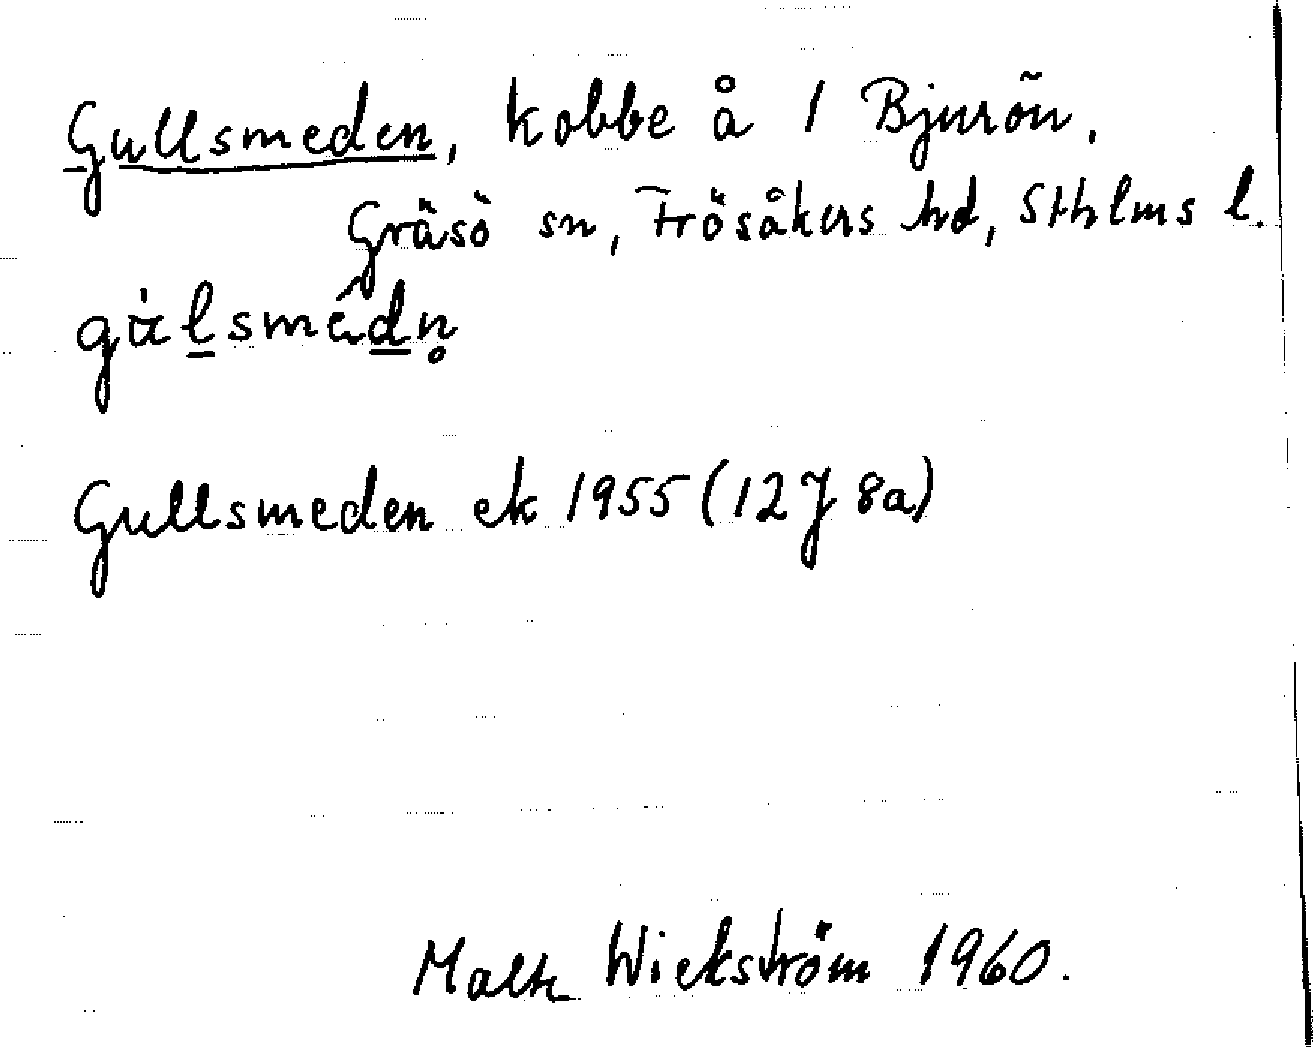 Gullsmeden, kobbe å 1 Bjurön,
Gräsö sn, Frösåkers hd, Sthlms l.
Gullsmeden ek 1955 (12J 8a)
Wickström 1960.